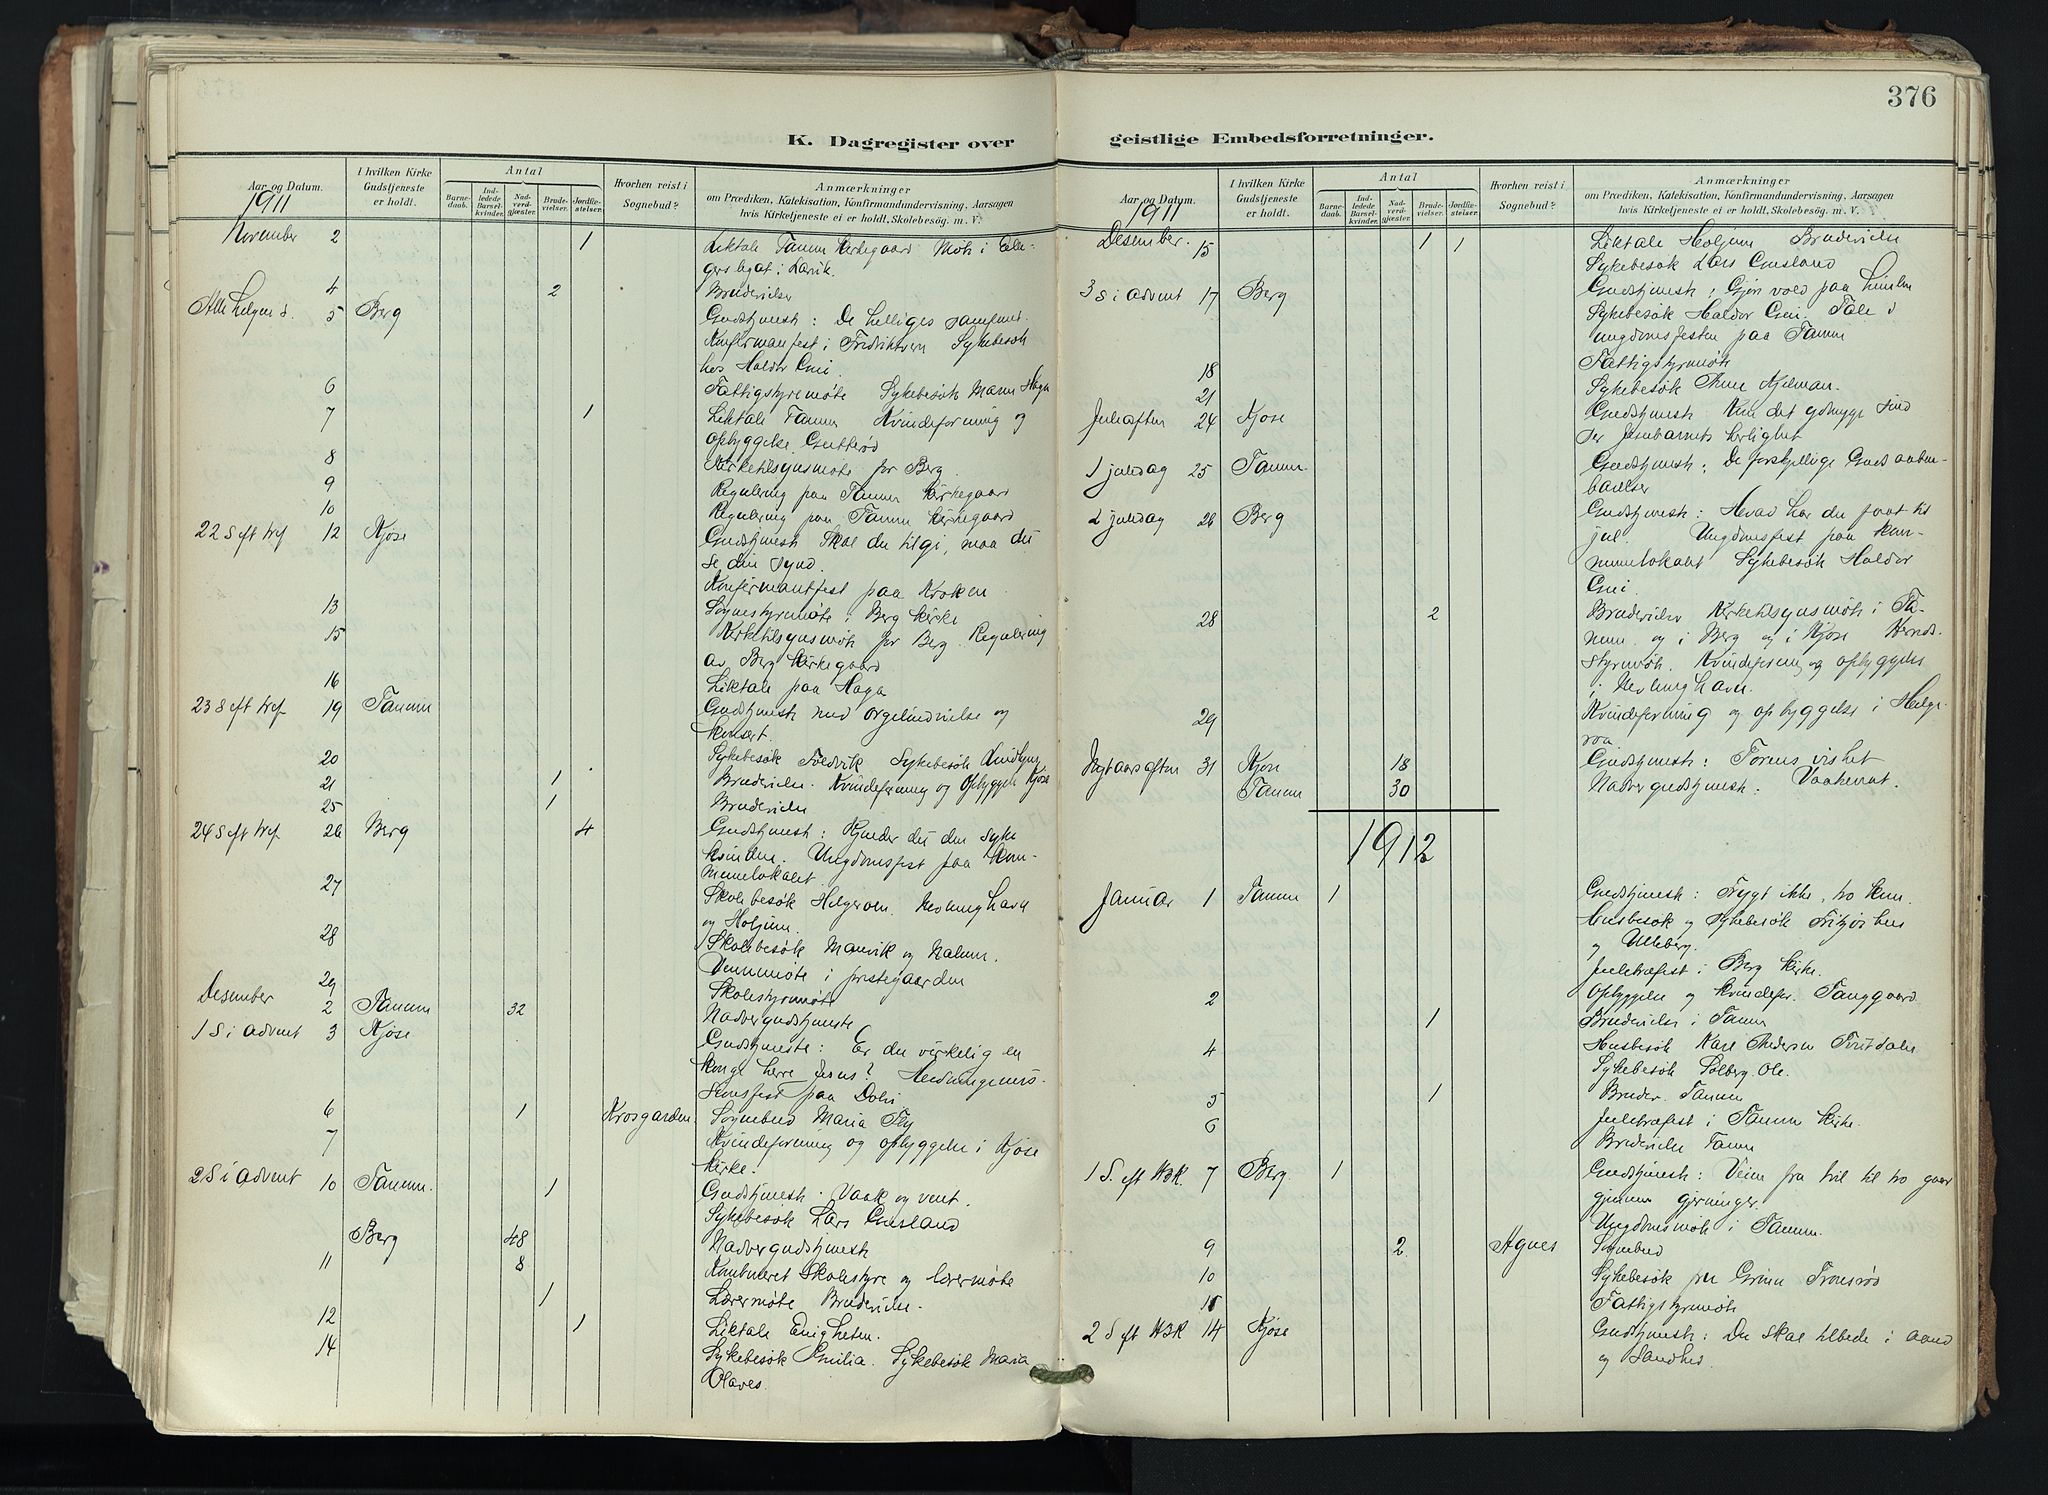 K. Dagregister over
Aar og Datum.
I hvilken Kirke Gudstjeneste er holdt.
Antal
Barnedaab.
Indledede Barselkvinder.
Nadverdgjæster.
Brudevielser.
Jordfæstelser.
Hvorhen reist i Sognebud?
Anmærkninger
om Prædiken, Katekisation, Konfirmandundervisning, Aarsagen
hvis Kirketjeneste ei er holdt, Skolebesög. m. V.
1911
November 2 1 Liktale Tanum kirkegaard Møte i
legat i Larvik.
4 2 Brudevielser
Alle helgens d. 5 Berg Gudstjeneste: De helliges samfund.
Konfirmanfest i Fredriksvern Sykebesøk
hos Haldor
6 Fattigstyremøte Sykebesøk Haga
7 1 Liktale Tanum Kvindeforening og
opbyggelse
8 Kirketilsynsmøte for Berg.
9 Regulering paa Tanum kirkegaard
10 Regulering paa Tanum kirkegaard
22 S eft tref 12 Kjose Gudstjenest Skal du tilgi, maa du
se din synd.
Konfirmantfest paa Kroken
13 Sognestyremøte i Berg kirke
15 Kirketilsynsmøte for Berg. Regulering
av Berg kirkegaard
16 Liktale paa Haga
23 S eft tref 19 Tanum Gudstjeneste med orgelindvielse og
konsert.
20 Sykebesøk Sykebesøk
21 1 Brudevielse. Kvindeforening og Opbyggelse Kjose
25 1 Brudevielse
24 S eft tref 26 Berg 4 Gudstjeneste: Kjender du den syke
kvinden. Ungdomsfest paa kom-
munelokalet
27 Skolebesøk Helgeroen. Nevlunghavn
og Holjum.
28 Skolebesøk Manvik og Nalum.
Vennemøte i prestegaarden
29 Skolestyremøte
Desember 2 Tanum 32 Nadvergudstjeneste
1 S i advent 3 Kjose Gudstjeneste: Er du virkelig en
konge herre Jesus? Hedningemis-
sionsfest paa
6 1 Krosgarden. Sognebud Maria
7 Kvindeforening og opbyggelse i Kjose
kirke.
2 S i advent 10 Tanum. 1 Gudstjeneste. Vaak og vent.
Sykebesøk Lars
Berg 48 Nadvergudstjeneste
11 8 Kombineret Skolestyre og lærermøte
1 Lærermøte Brudevielse.
12 1 Liktale Enigheten.
14 Sykebesøk Emilia. Sykebesøk Maria
Olaves.
376
geistlige Embedsforretninger.
Aar og Datum.
I hvilken Kirke Gudstjeneste er holdt.
Antal
Barnedaab.
Indledede Barselkvinder.
Nadverdgjæster.
Brudevielser.
Jordfæstelser.
Hvorhen reist i Sognebud?
Anmærkninger
om Prædiken, Katekisation, Konfirmandundervisning, Aarsagen
hvis Kirketjeneste ei er holdt, Skolebesög. m. V.
1911
Desember. 15 1 1 Liktale Holjum Brudevielse
Sykebesøk Lars
3 S i advent 17 Berg Gudstjeneste: Gjør vold paa himlen
Sykebesøk Haldor Tale i
ungdomsfesten paa Tanum
18 Fattigstyremøte
21 Sykebesøk
Juleaften 24 Kjose Gudstjeneste Kun det ydmyge sind
ser Jesubarnets herlighet
1 juledag 25 Tanum Gudstjeneste: De forskjellige Guds aaben-
barelser
2 juledag 26 Berg Gudstjeneste: Hvad har du faat til
jul. Ungdomsfest paa kom-
munelokalet Sykebesøk Haldor
28 2 Brudevielser Kirketilsynsmøte i Ta-
num og i Berg og i Kjose Herreds-
styremøte. Kvindeforening og opbyggelse
i Nevlunghavn.
29 Kvindeforening og opbyggelse i Helge-
roa
Nytaarsaften 31 Kjose 18 Gudstjeneste: Troens vishet
Tanum 30 Nadvergudstjeneste: Vaakenat.
1912
Januar 1 Tanum 1 Gudstjeneste: Frygt ikke, tro kun.
Husbesøk og Sykebesøk Fritzøehus
og Ulleberg.
Juletræfest i Berg kirke.
2 Opbyggelse og kvindefor.
1 Brudevielse i Tanum
4 Husbesøk
Sykebesøk Solberg. Ole.
5 1 Brudev. Tanum
6 Juletræfest i Tanum kirke.
Brudevielse Tanum
1 S. eft H3K 7 Berg. 1 Gudstjeneste: Veien fra tvil til tro gaar
gjennem gjerninger.
Ungdomsmøte i Tanum.
9 2 Agnes Sognebud
10 Sykebesøk
11 Fattigstyremøte
2 S eft H3K 14 Kjose Gudstjeneste: Du skal tilbede i aand
og Sandhed.